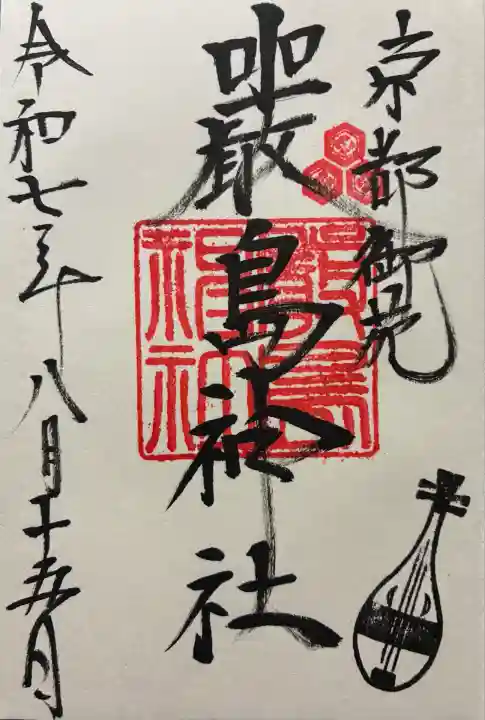 京都御苑
嚴島神社
嚴島神社
令和七年八月十五日